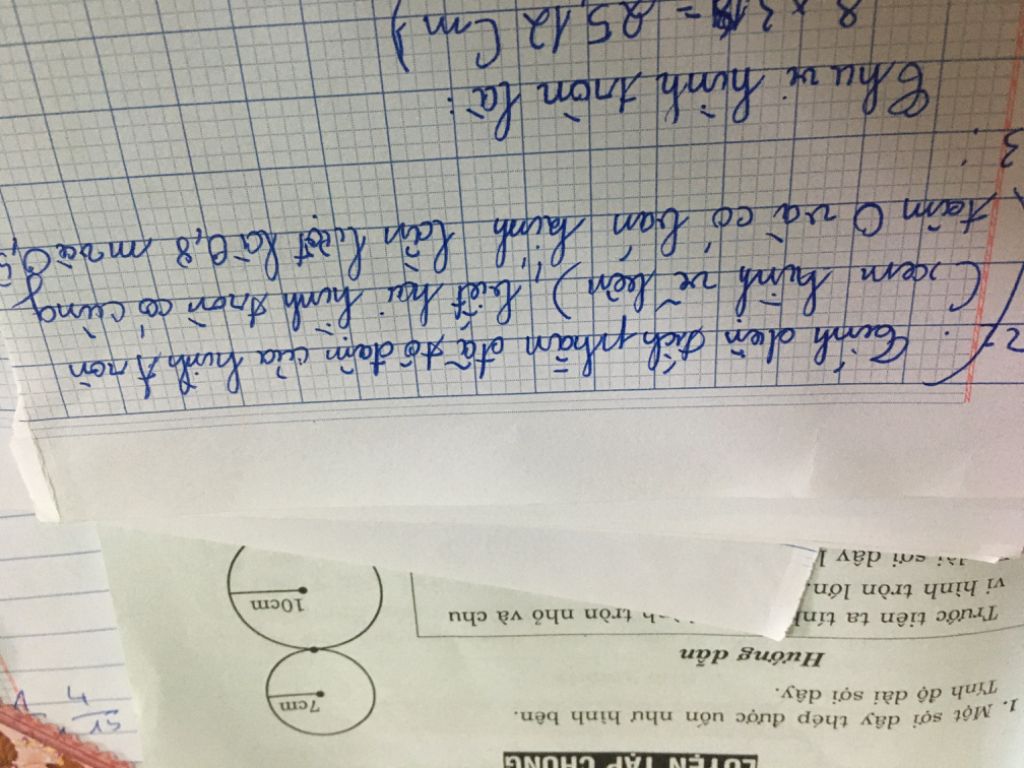 LUYỆN TẬP CHUNG
1. Một sợi dây thép được uốn như hình bên.
Tính độ dài sợi dây.
7cm
Hướng dẫn
Trước tiên ta tính
tròn nhỏ và chu
vi hình tròn lớn,
sợi dây
10cm
15
4
2. Tính diện tích phần đã tô đậm của hình tròn
(xem hình vẽ bên), biết hai hình tròn có cùng
tâm O và có bán kính lần lượt là 0,8 m và 0,5
3:
Chu vi hình tròn là:
= 25,12 Cm)